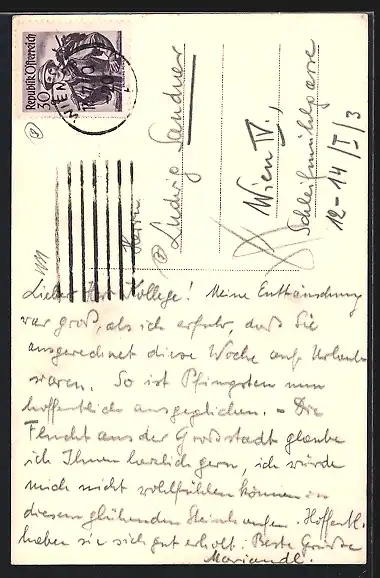 REPUBLIK ÖSTERREICH
30
WIEN
Herrn
Ludwig Sandner
Wien IV.,
Schleifmühlgasse
12-14/I/3
Lieber Herr Kollege! Meine Enttäuschung
war groß, als ich erfuhr, daß Sie
ausgerechnet diese Woche auf Urlaub
waren. So ist Pfingsten nun
hoffentlich ausgeglichen. - Die
Flucht aus der Großstadt glaube
ich Ihnen herzlich gern, ich würde
mich nicht wohlfühlen können in
diesem glühenden Steinhaufen. Hoffentl.
haben sie sich gut erholt. Beste Grüße
Mariandl.